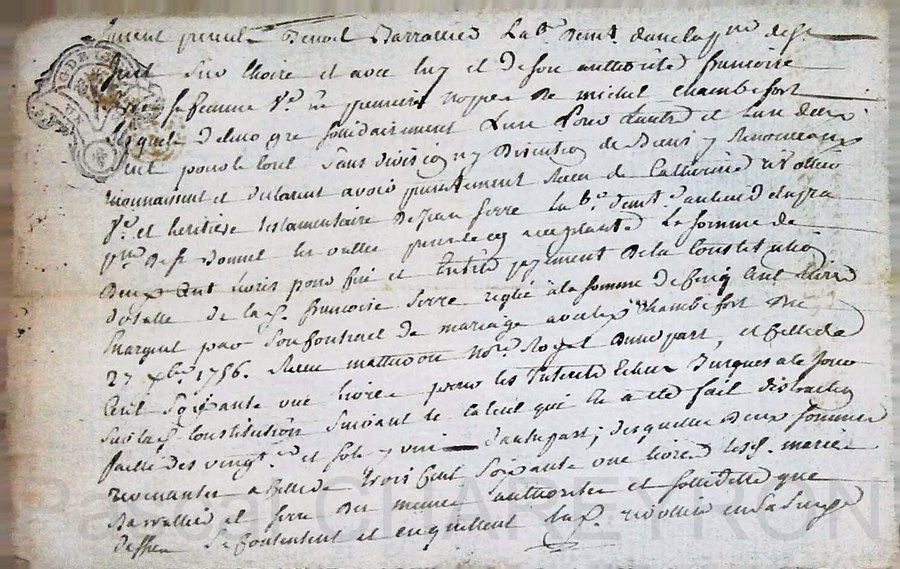 furent presents Benoit Barrallier lab.r dem.t dans la p.sse de st
just sur Loire et avec luy et de son authorité francoise
serre sa femme v.e en premiere nopces de michel chambefort
lesquels de leur gré solidairement l'un pour l'autre et l'un d'eux
seul pour le tout sans division ny discution de biens y renonceants
reconnaissent et declarent avoir presentement receu de Catherine revollier
v.e et heritiere testamentaire de jean serre lab.r dem.t au lieu de
p.sse de st Bonnet les oulles presente et acceptante la somme de
deux cent livres pour fin et entier payement de la constitution
dotalle de la d. francoise serre reglée a la somme de cinq cent livres
chargent par son contract de mariage avec led. chambefort du
27 xbre 1756. Receu mathevon no.re Royal d'une part, et celle de
cent soixante une livre pour les interets echeus jusques a ce jour
sur la d. constitution suivant le calcul qui en a eté fait distraction
faitte des vingt.e et sols y unis d'autre part; desquelles deux sommes
revenantes a celle de trois cent soixante une livres lesd. mariés
Barrallier et serre du meme authorité et solidité que
dessus se contentent et en quittent lad. revollier
Pascal CHAREYRON